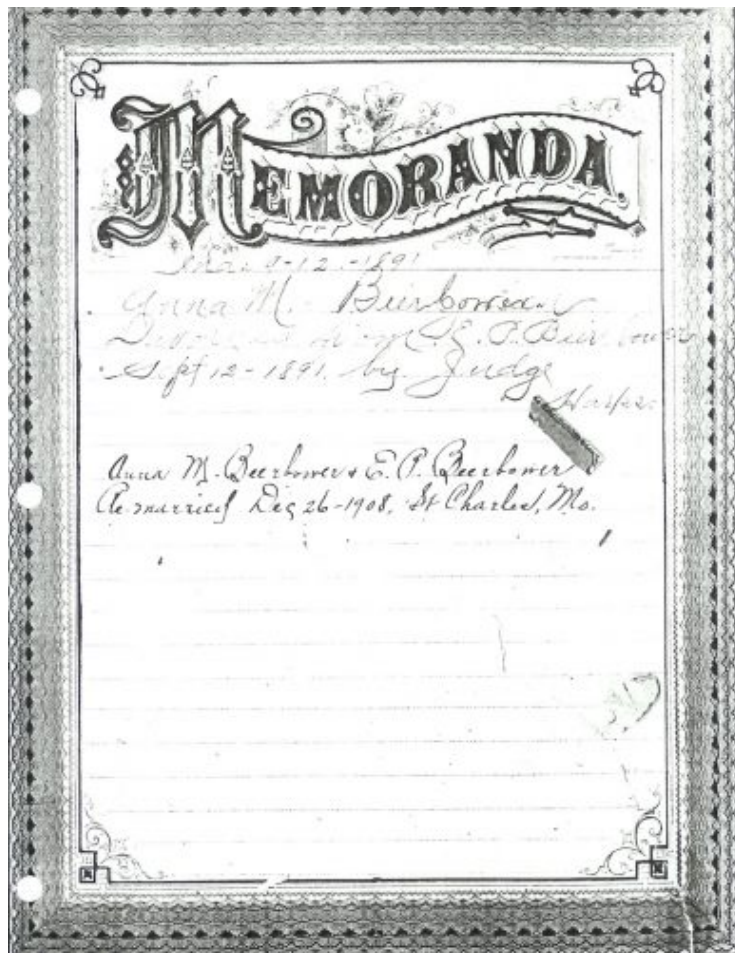 MEMORANDA.
12-1891
Anna M. Beerbower
Divorced from E. P. Beerbower
Sept 12-1891. by Judge
Harper.
Anna M. Beerbower & E. P. Beerbower
Re-married Dec 26-1908, St Charles, Mo.